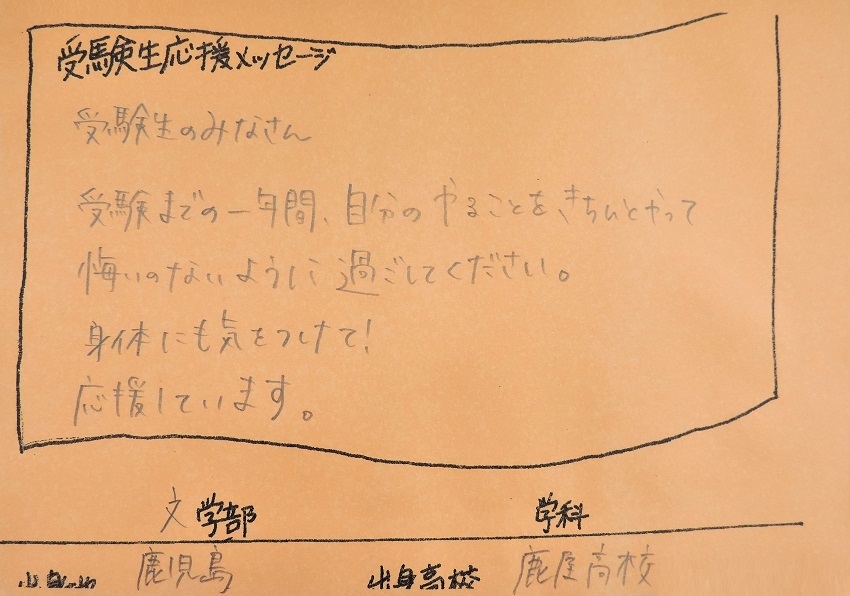 受験生応援メッセージ
受験生のみなさん
受験までの一年間、自分のやることを、きちんとやって
悔いのないように過ごしてください。
身体にも気をつけて!
応援しています。
文学部 学科
鹿児島 出身高校 鹿屋高校